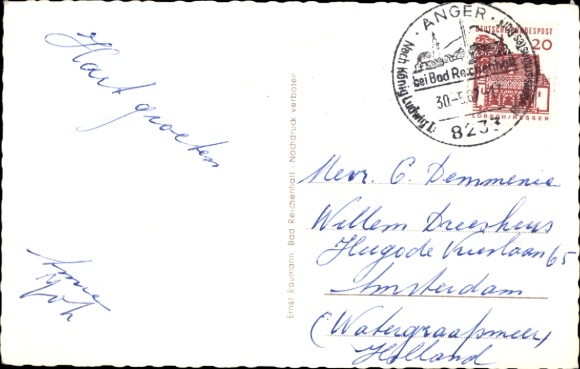 Hart groeten
Anna
Joh
Ernst Baumann, Bad Reichenhall · Nachdruck verboten
· ANGER ·
bei Bad Reichenhall
30-5.67
Nach König Ludwig I.
8233
DEUTSCHE BUNDESPOST
20
LORSCH/HESSEN
Mevr. C. Demmenie
Willem Dreeshuis
Hugo de Vrieslaan 65
Amsterdam
(Watergraafsmeer)
Holland